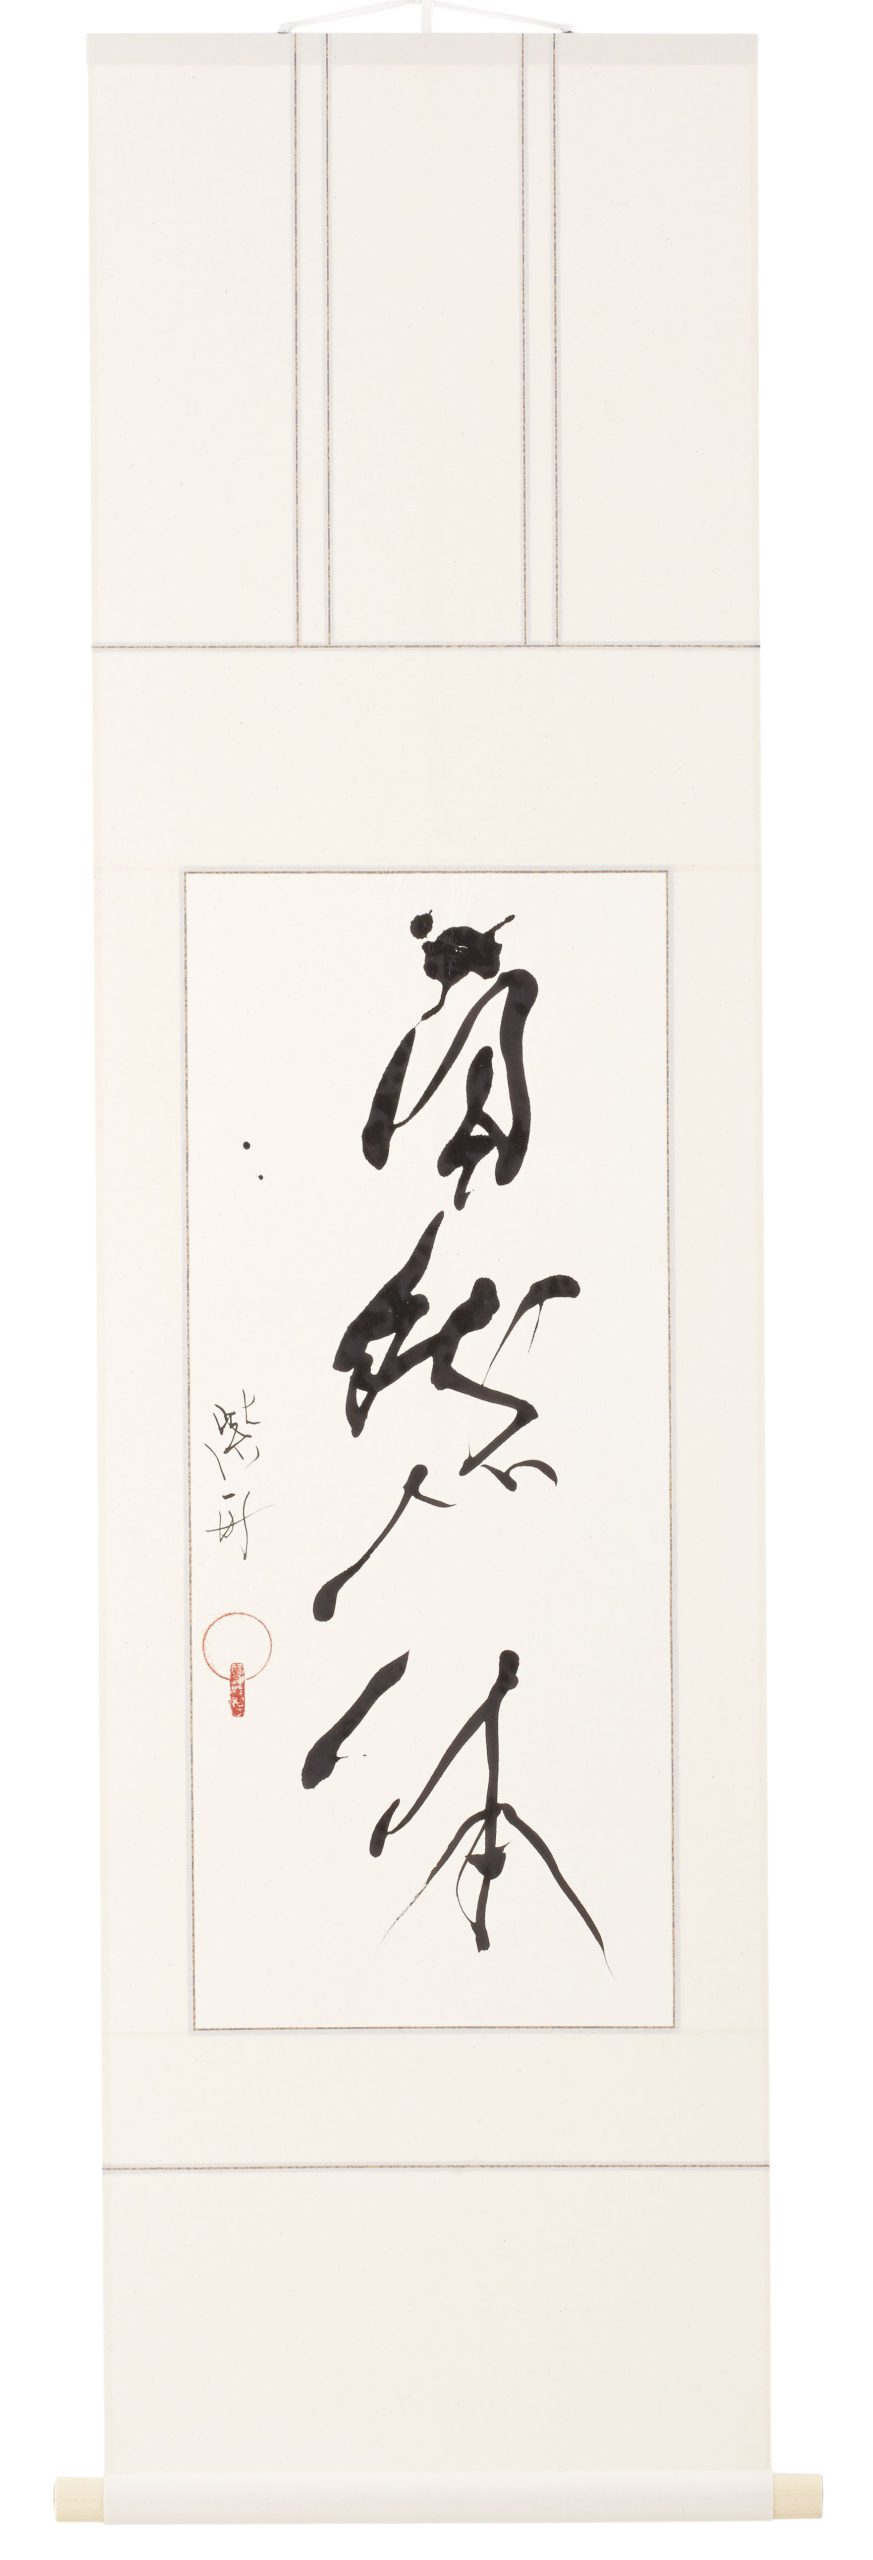 自然体
紫舟